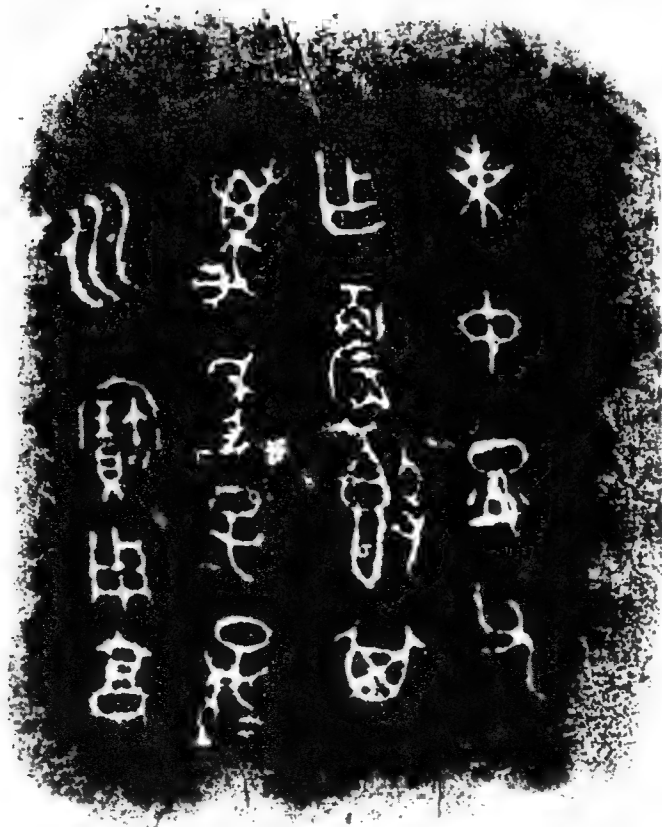 朿中豆父
乍𣪘其
萬年子孫=
永寶用享